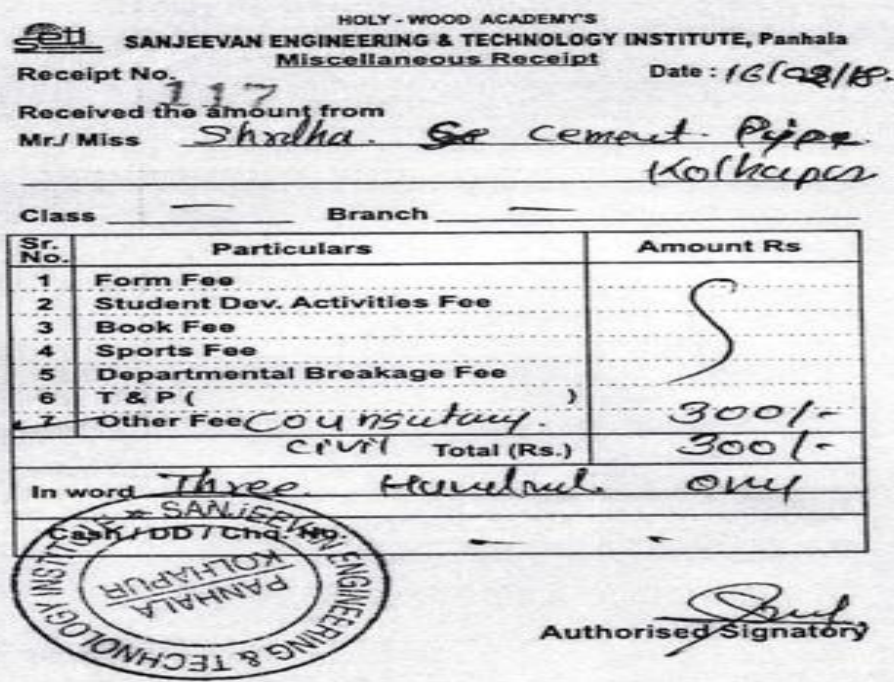 HOLY-WOOD ACADEMY'S
seti SANJEEVAN ENGINEERING & TECHNOLOGY INSTITUTE, Panhala
Miscellaneous Receipt
Receipt No. 117 Date: 16/08/18.
Received the amount from
Mr./ Miss Shrdha. Cement. Pipe.
Kolhapur
Class — Branch —
Sr. No. Particulars Amount Rs
1 Form Fee
2 Student Dev. Activities Fee
3 Book Fee
4 Sports Fee
5 Departmental Breakage Fee
6 T & P ( )
7 Other Fee Counsutany. 300/-
Civil Total (Rs.) 300/-
In word Three Hundred. Only
Cash / DD / Chq. No. - -
SANJEEVAN ENGINEERING & TECHNOLOGY INSTITUTE
PANHALA
KOLHAPUR
Authorised Signatory